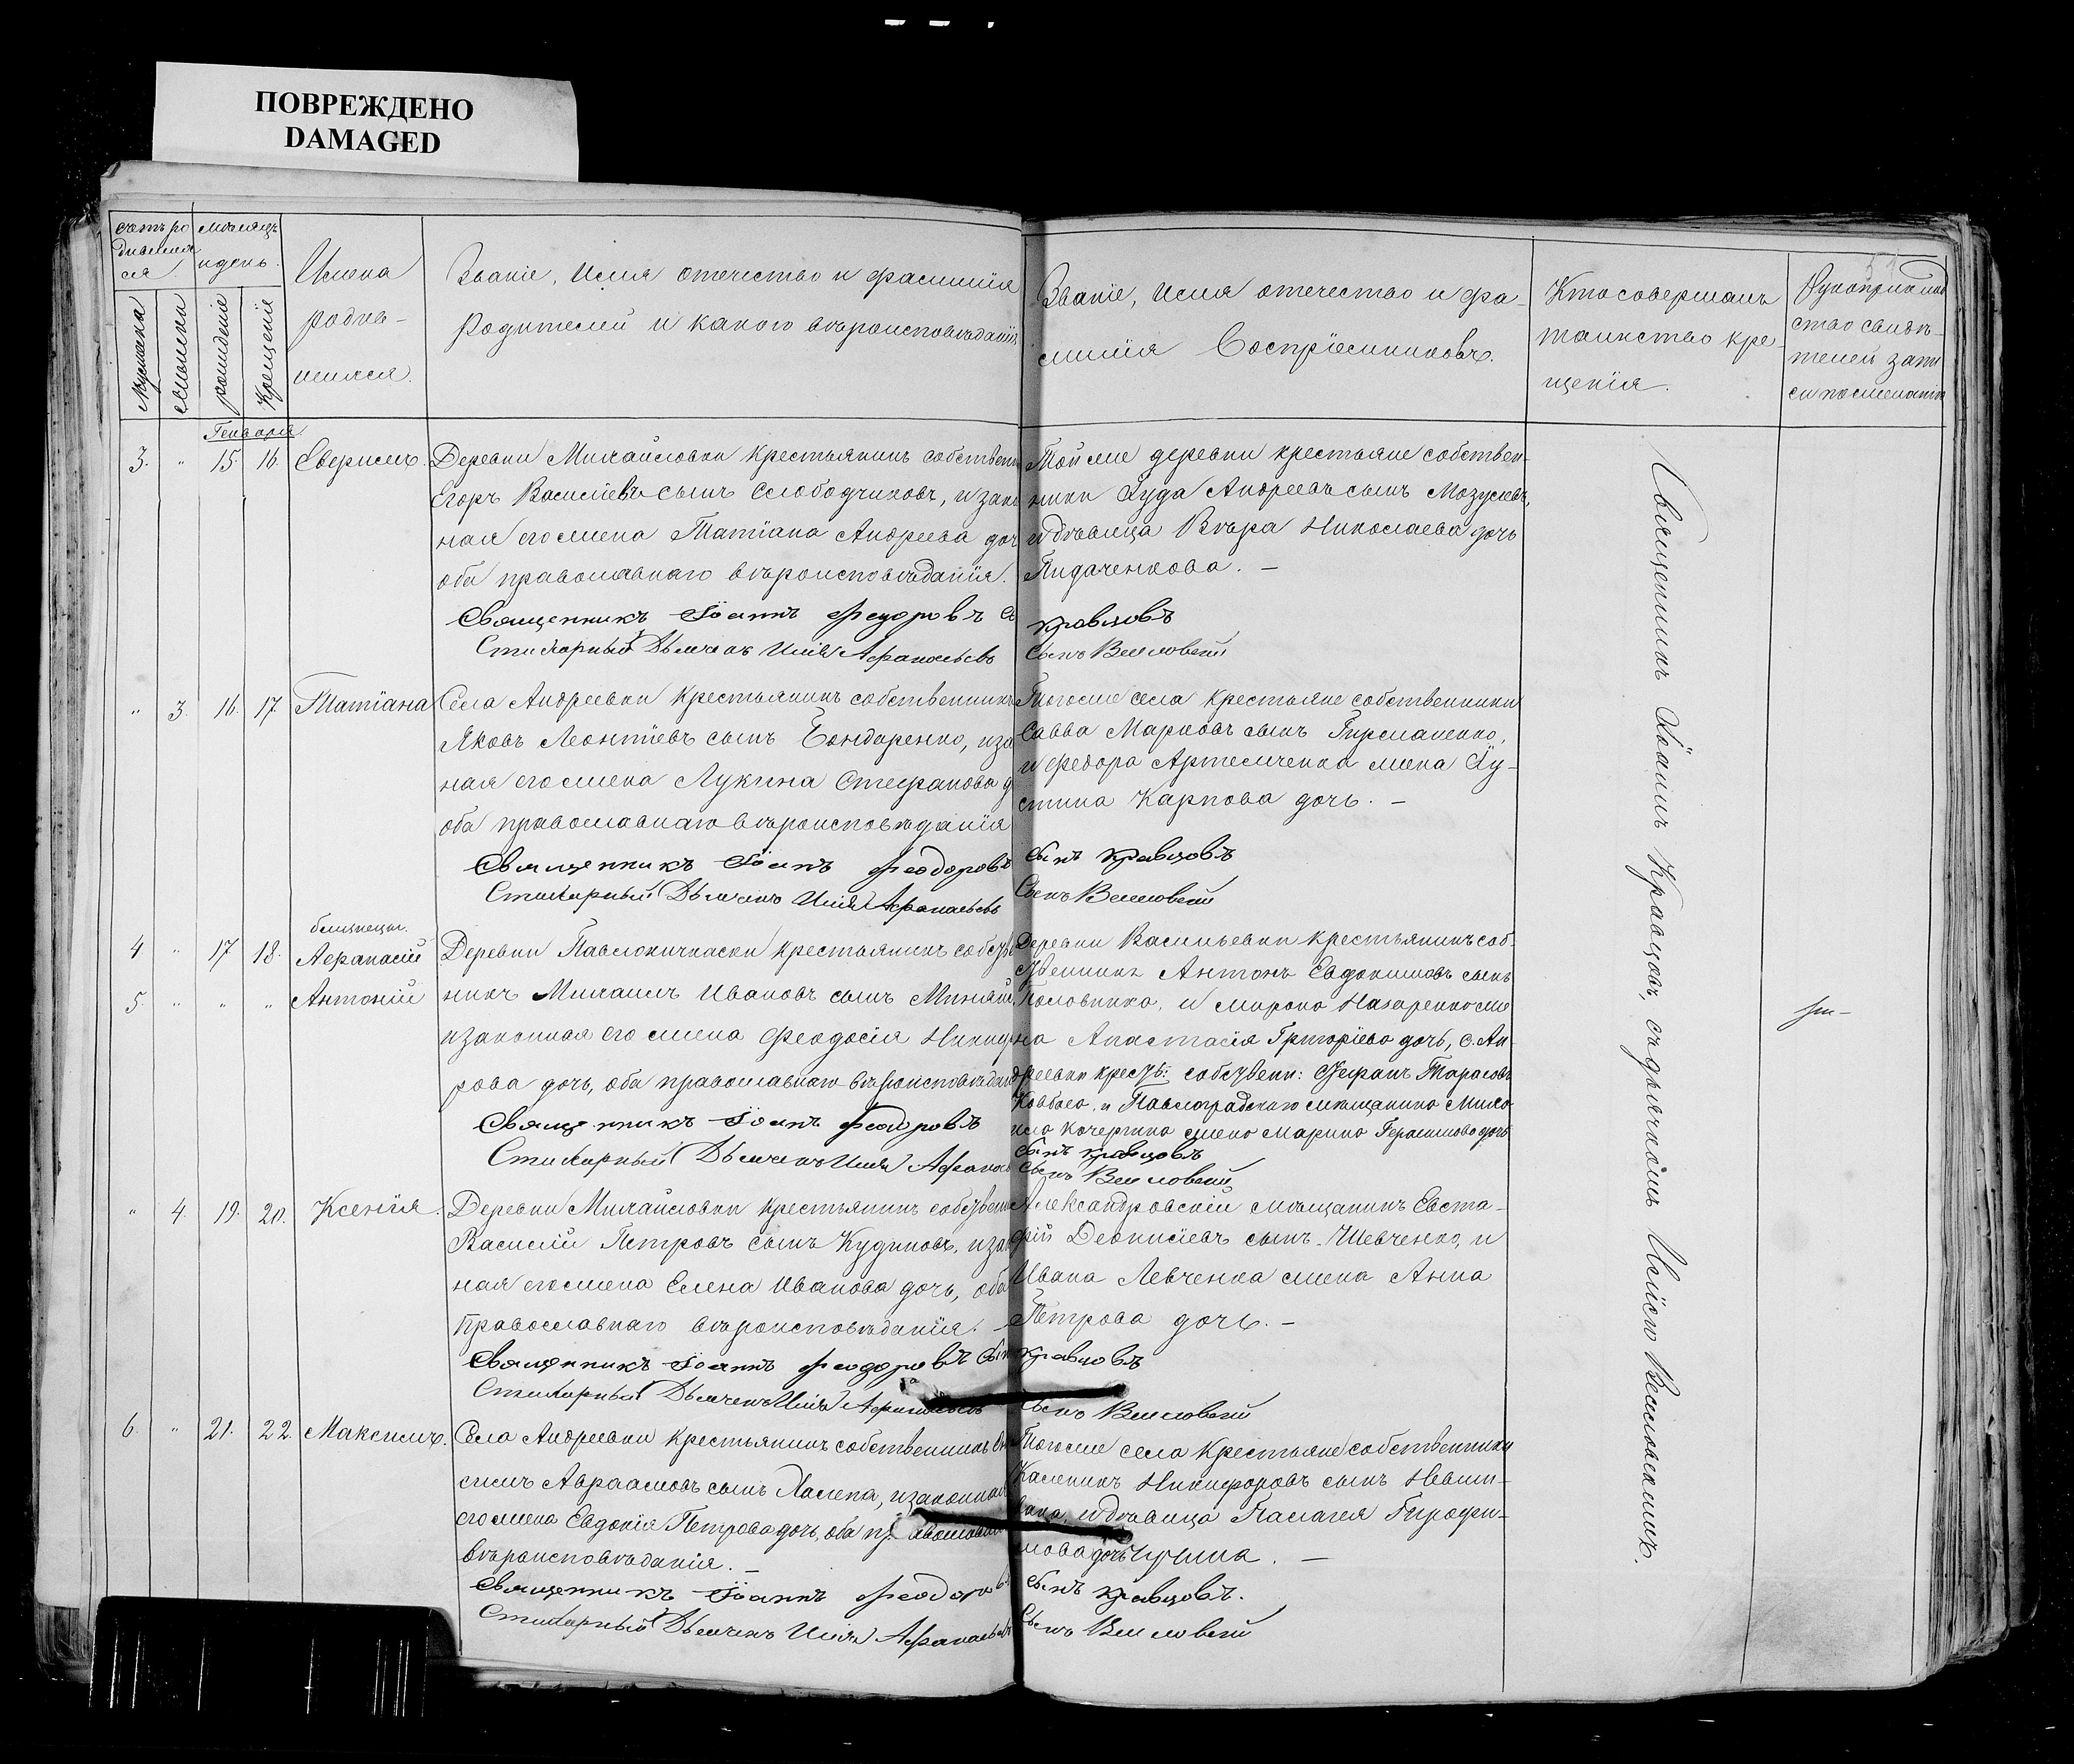 ПОВРЕЖДЕНО
DAMAGED
счетъ ро
дивших
ся
мѣсяцъ
и день.
Мужеска
Женска
рожденіе
Крещеніе
Имена
родив-
шихся.
Званіе, Имя отечество и фамилія
Родителей и какого вѣроисповѣданія
Званіе, Имя отечество и фа-
милія Воспріемниковъ.
Кто совершалъ
таинство кре-
щенія.
Рукоприклад
ство свидѣ-
телей запи
си по желанію
Генваря
3. " 15 16. Северинъ.
Деревни Михайловки крестьянинъ собственн
Егоръ Василіевъ сынъ Слободчиковъ, и закон
ная его жена Татіана Андреева доч
оба православнаго вѣроисповѣданія.
Священникъ Іоаннъ Феодоровъ С
Стихарный Дьячекъ Илія Афанасьевъ
Той же деревни крестьяне собствен-
ники Іуда Андреевъ сынъ Мозулевъ,
и дѣвица Вѣра Николаева дочь
Пидаченкова. —
Кравцовъ
Сынъ Вешловскій
" 3. 16. 17. Татіана
Села Андреевки крестьянинъ собственникъ
Яковъ Леонтіевъ сынъ Бондаренко, и зак
ная его жена Лукина Стефанова д
оба православнаго вѣроисповѣданія
Священникъ Іоаннъ Феодоровъ
Стихарный Дьячекъ Илія Афанасьевъ
Того же села крестьяне собственники
Савва Марковъ сынъ
и Федора Артемченка жена Іу-
стина Карпова дочь. —
Сынъ Кравцовъ
Сынъ Вешловскій
близнецы.
4 " 17 18. Аѳанасій
5. " " " Антоній
Деревни крестьянинъ собств
никъ Михаилъ Ивановъ сынъ
и законная его жена Феодосія Никиф
рова дочь, оба православнаго вѣроисповѣдан
Священникъ Іоаннъ Феодоровъ
Стихарный Дьячекъ Илія Афанась
Деревни Васильевки крестьянинъ соб-
ственникъ Антонъ Евдокимовъ сынъ
Половинка, и Мирона Назаренко же
на Анастасія Григоріева дочь, с. Ан-
дреевки крест: собственн: Стефанъ Тарасовъ
Ковбаса, и Павлоградскаго мѣщанина Миха
ила Кочергина жена Марина Герасимова дочь
Сынъ Кравцовъ
Сынъ Вешловскій
" 4. 19. 20. Ксенія.
Деревни Михайловки крестьянинъ собствен
Василій Петровъ сынъ Кудиновъ, и зак
ная его жена Елена Иванова дочь, оба
православнаго вѣроисповѣданія. —
Священникъ Іоаннъ Феодоровъ Сын
Стихарный Дьячекъ Илія Афанасьевъ
Александровскій мѣщанинъ Евста-
фій Деонисіевъ сынъ Шевченко, и
Ивана Левченка жена Анна
Петрова дочь. —
Кравцовъ
Сынъ Вешловскій
6. " 21. 22. Максимъ.
Села Андреевки крестьянинъ собственникъ Он
симъ Авраамовъ сынъ и законная
его жена Евдокія Петрова дочь, оба православнаго
вѣроисповѣданія. —
Священникъ Іоаннъ Феодоровъ
Стихарный Дьячекъ Илія Афанасьевъ
Того же села крестьяне собственники
Каленикъ Никифоровъ сынъ
и дѣвица Палагея
дочь —
Сынъ Кравцовъ.
Сынъ Вешловскій
Священникъ Іоаннъ Кравцовъ, съ дьячкомъ Иліею Вешловскимъ.